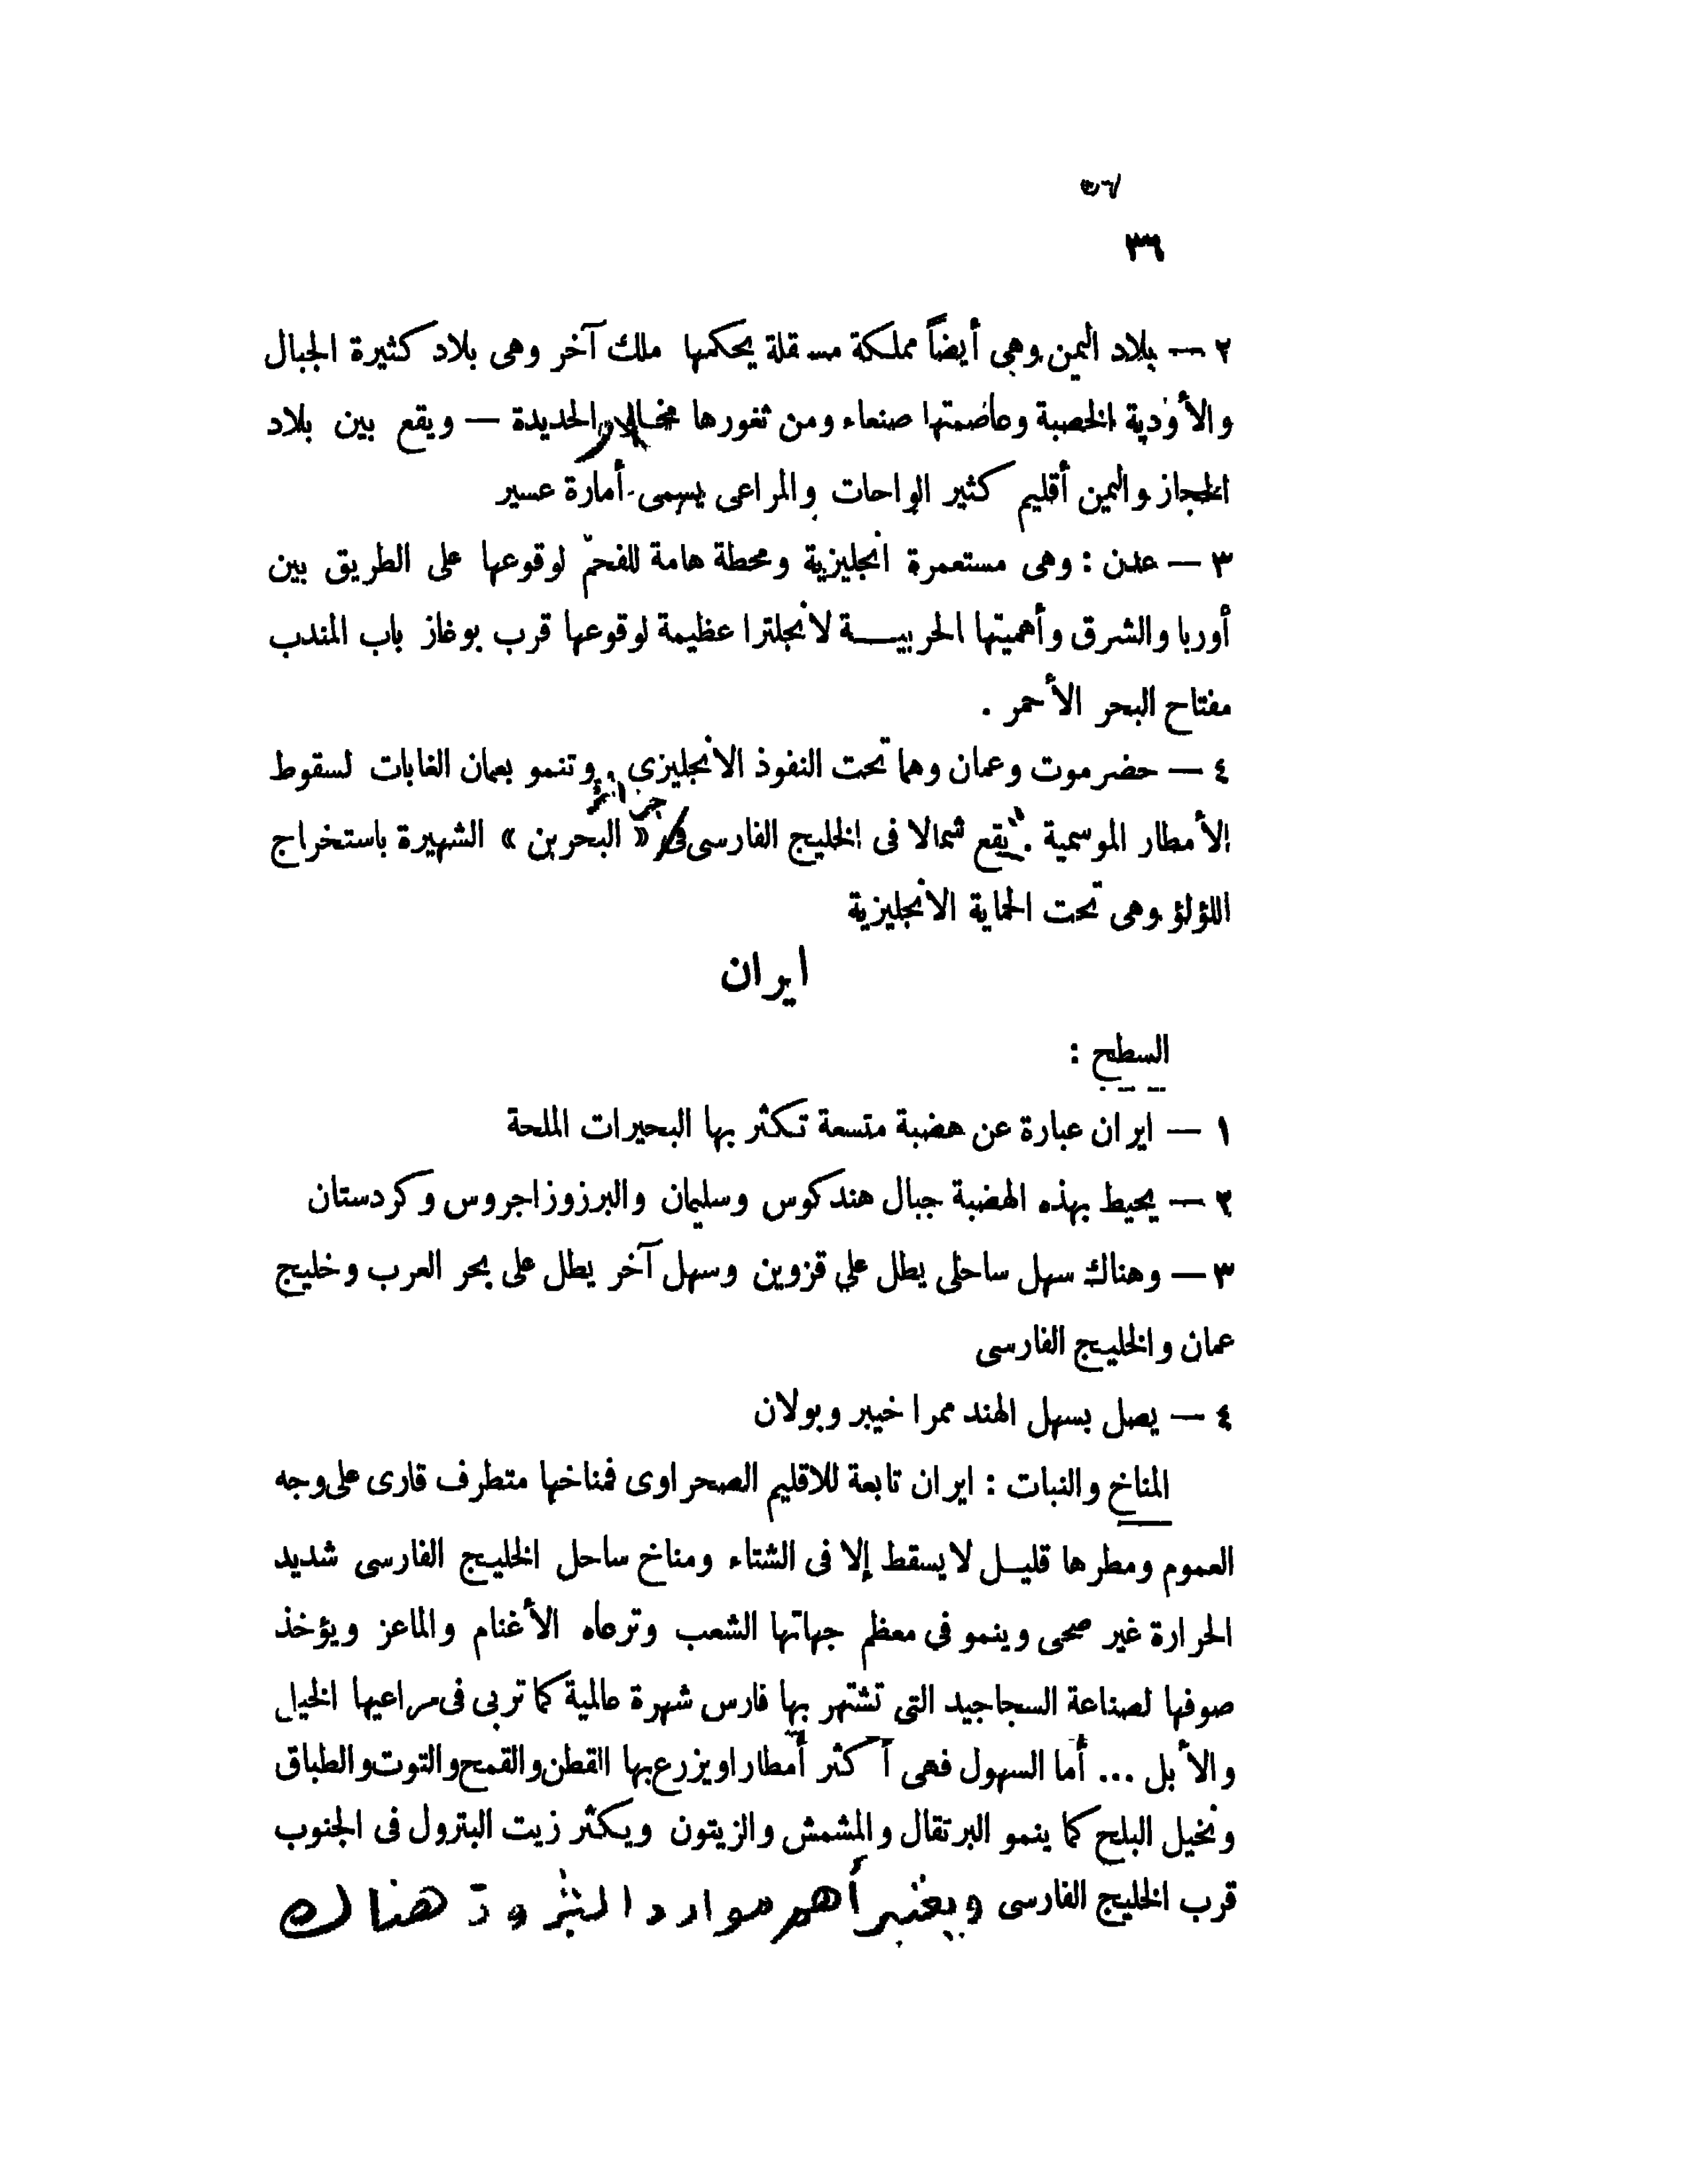 ٣٦
٢ — بلاد اليمن وهى أيضاً مملكة مستقلة يحكمها ملك آخر وهى بلاد كثيرة الجبال
والأودية الخصبة وعاصمتها صنعاء ومن ثغورها مخا والحديدة — ويقع بين بلاد
الحجاز واليمن أقليم كثير الواحات والمراعى يسمى أمارة عسير
٣ — عدن : وهى مستعمرة انجليزية ومحطة هامة للفحم لوقوعها على الطريق بين
أوربا والشرق وأهميتها الحربيــة لانجلترا عظيمة لوقوعها قرب بوغاز باب المندب
مفتاح البحر الأحمر .
٤ — حضرموت وعمان وهما تحت النفوذ الانجليزى . وتنمو بعمان الغابات لسقوط
جزائر
الأمطار الموسمية . يقع شمالا فى الخليج الفارسى « البحرين » الشهيرة باستخراج
اللؤلؤ وهى تحت الحماية الانجليزية
ايران
السطح :
١ — ايران عبارة عن هضبة متسعة تكثر بها البحيرات الملحة
٢ — يحيط بهذه الهضبة جبال هندكوس وسليمان والبرزوزاجروس وكردستان
٣ — وهناك سهل ساحلى يطل على قزوين وسهل آخر يطل على بحر العرب وخليج
عمان والخليج الفارسى
٤ — يصل بسهل الهند ممرا خيبر وبولان
المناخ والنبات : ايران تابعة للاقليم الصحراوى فمناخها متطرف قارى على وجه
العموم ومطرها قليــل لا يسقط إلا فى الشتاء ومناخ ساحل الخليج الفارسى شديد
الحرارة غير صحى وينمو فى معظم جهاتها الشعب وترعاه الأغنام والماعز ويؤخذ
صوفها لصناعة السجاجيد التى تشتهر بها فارس شهرة عالمية كما تربى فى مراعيها الخيل
والأبل ... أما السهول فهى أكثر أمطارا ويزرع بها القطن والقمح والتوت والطباق
ونخيل البلح كما ينمو البرتقال والمشمش والزيتون ويكثر زيت البترول فى الجنوب
قرب الخليج الفارسى ويعتبر أهم موارد الثروة هناك